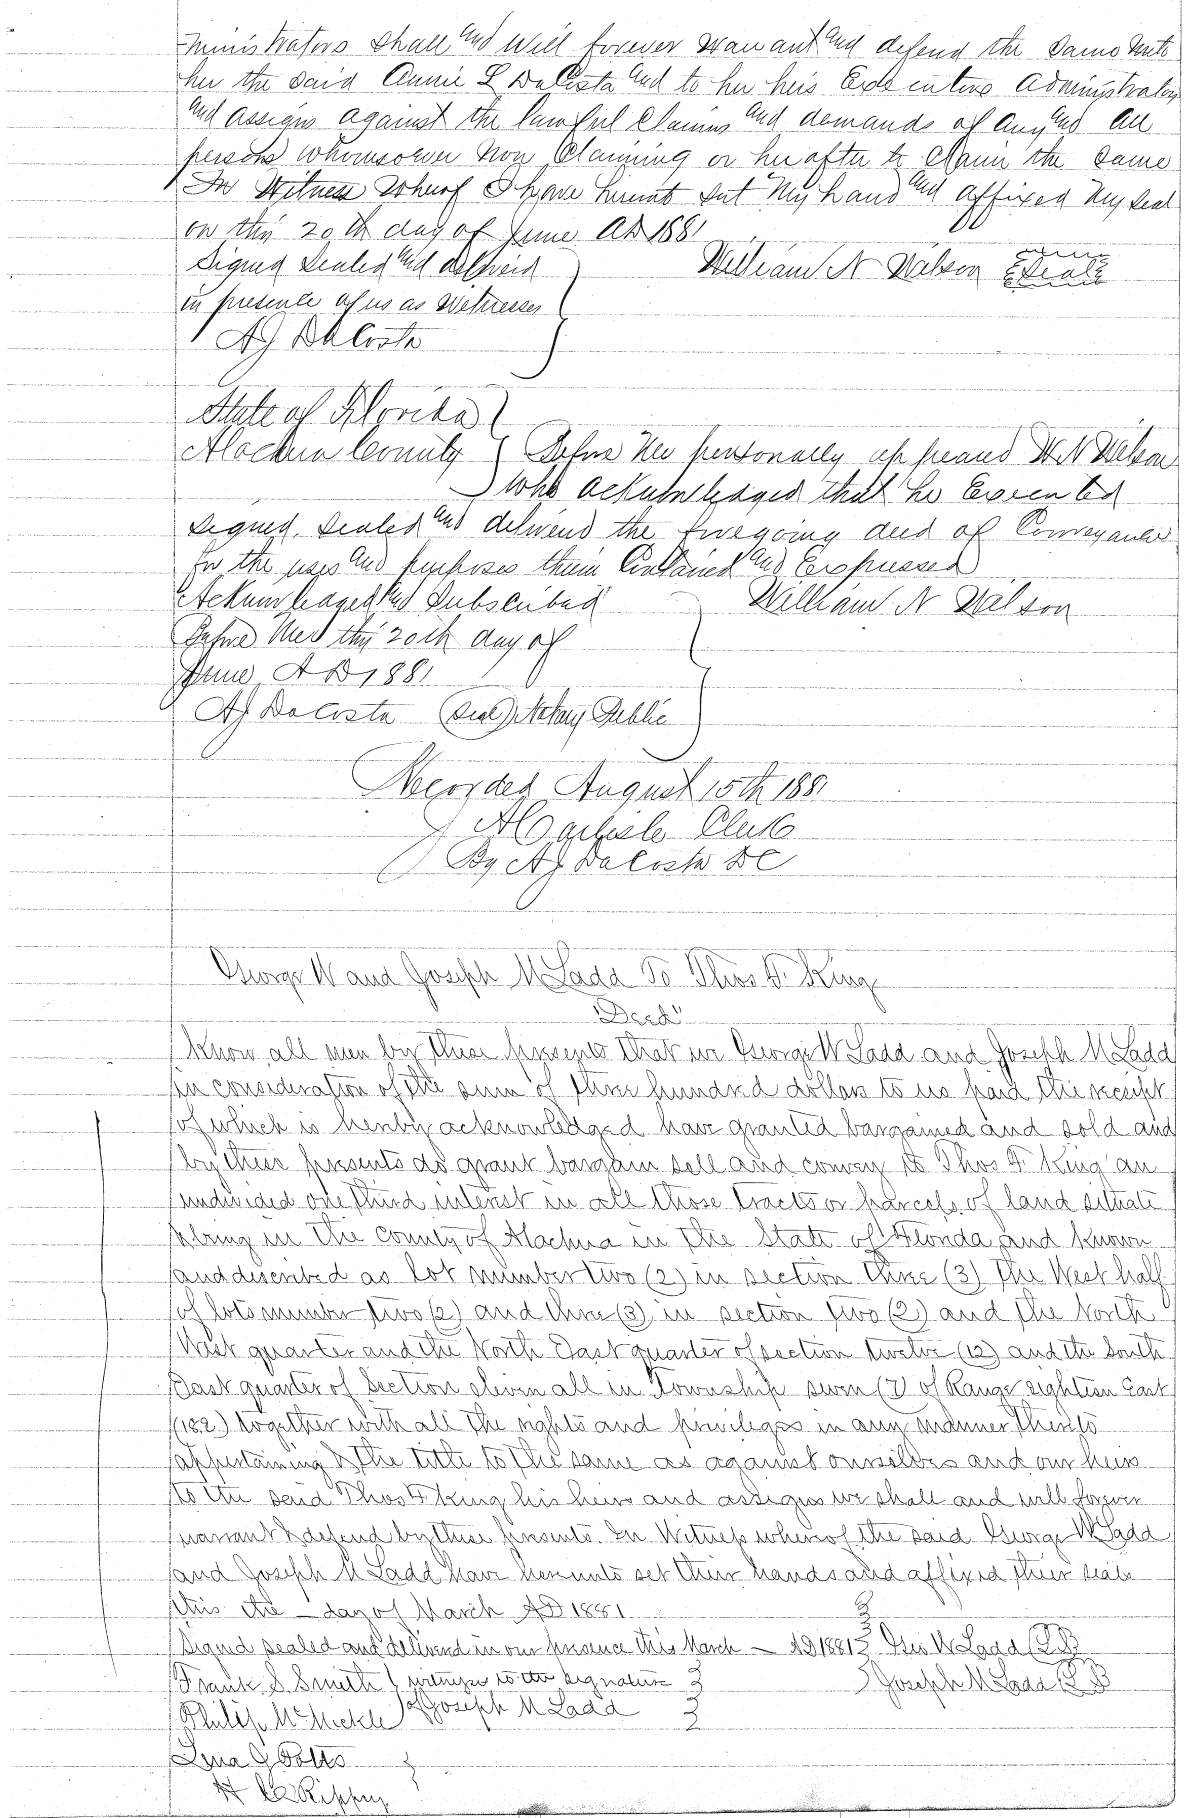 ministrators shall and will forever warrant and defend the same unto
her the said Annie L DaCosta and to her heirs Executors Administrators
and assigns against the lawful Claims and demands of any and all
persons whomsoever now Claiming or hereafter to claim the same
In Witness Whereof I have hereunto set my hand and affixed my seal
on this 20th day of June AD 1881
Signed Sealed and delivered William N Wilson Seal
in presence of us as Witnesses
AJ DaCosta
State of Florida
Alachua County Before me personally appeared W N Wilson
who acknowledged that he Executed
signed, sealed and delivered the foregoing deed of Conveyance
for the uses and purposes therein Contained and Expressed
Acknowledged and Subscribed William N Wilson
Before Me this 20th day of
June AD 1881
AJ DaCosta (Seal) Notary Public
Recorded August 15th 1881
J A Carlisle Clerk
By AJ DaCosta DC
George W and Joseph M Ladd To Thos F King
"Deed"
Know all men by these presents that we George W Ladd and Joseph M Ladd
in consideration of the sum of three hundred dollars to us paid the receipt
of which is hereby acknowledged have granted bargained and sold and
by these presents do grant bargain sell and convey to Thos F King an
undivided one third interest in all those tracts or parcels of land situate
& being in the county of Alachua in the State of Florida and known
and described as lot number two (2) in section three (3) the West half
of lots number two (2) and three (3) in section two (2) and the North
West quarter and the North East quarter of section twelve (12) and the South
East quarter of Section eleven all in Township seven (7) of Range eighteen East
(18E) together with all the rights and privileges in any manner thereto
appertaining & the title to the same as against ourselves and our heirs
to the said Thos F King his heirs and assigns we shall and will forever
warrant & defend by these presents. In Witness whereof the said George W Ladd
and Joseph M Ladd have hereunto set their hands and affixed their seals
this the — day of March AD 1881
Signed sealed and delivered in our presence this March — AD 1881 Geo W Ladd (LS)
Frank S. Smith witness to the signature Joseph M Ladd (LS)
Philip McMickle of Joseph M Ladd
Lena J Potts
H C Rippey